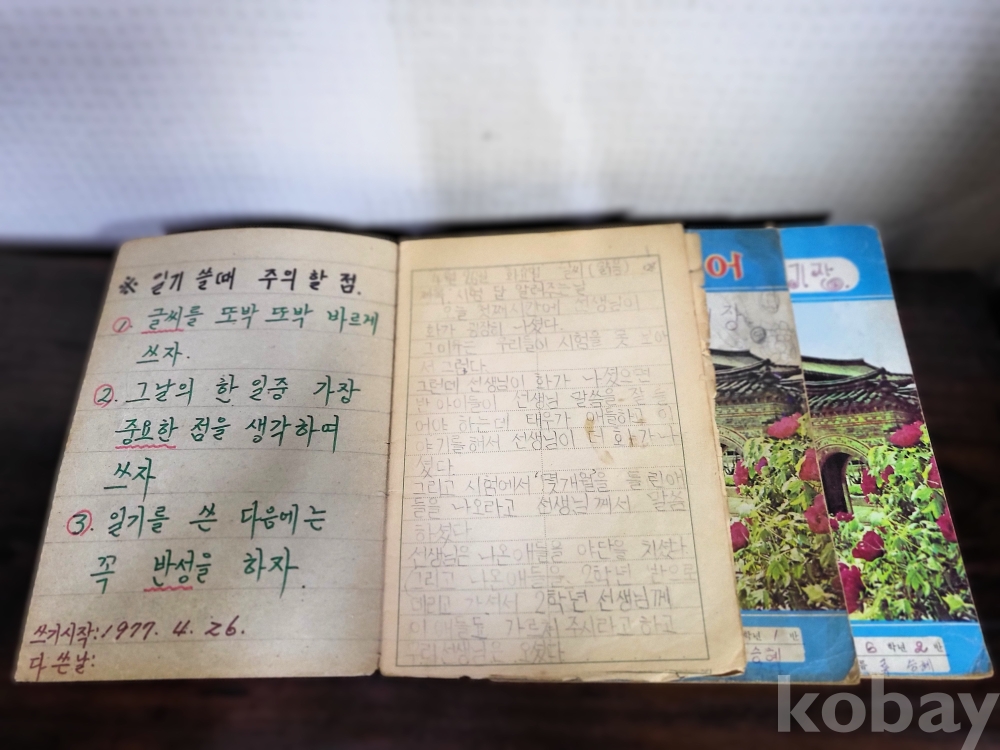 ※ 일기 쓸때 주의 할 점.
①. 글씨를 또박 또박 바르게
쓰자.
②. 그날의 한 일중 가장
중요한 점을 생각하며
쓰자
③. 일기를 쓴 다음에는
꼭 반성을 하자.
쓰기시작: 1977. 4. 26.
다 쓴날:
월 26일 화요일 날씨 (맑음)
시험 단
오늘 첫째시간에 선생님이
화가 굉장히 나셨다.
그이유는 우리들이 시험을 못 보아
서 그렇다.
그런데 선생님이 화가 나셨으면
반아이들이 선생님 말씀을 잘 들
어야 하는데 태우가 애들하고 이
야기를해서 선생님이 더 화가나
셨다
그리고 시험에서 '몇개월'을 틀린아
들을 나오라고 선생님께서 말씀
하셨다
선생님은 나온애들을 야단을 치셨다
그리고 나온애들을. 2학년 반으로
데리고 가셔서 2학년 선생님께
이 애들도 가르쳐 주시라고 하고
우리선생님은 오셨다
어
기장
장
학년 1 반
승혜
6 학년 2 반
승혜
kobay